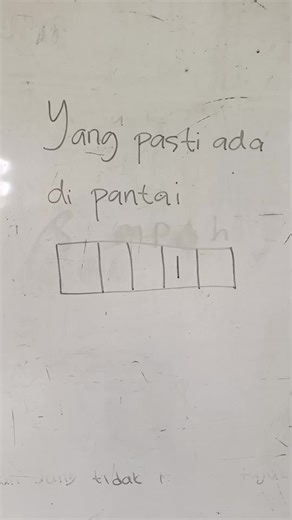 Yang pasti ada
di pantai
I
tidak